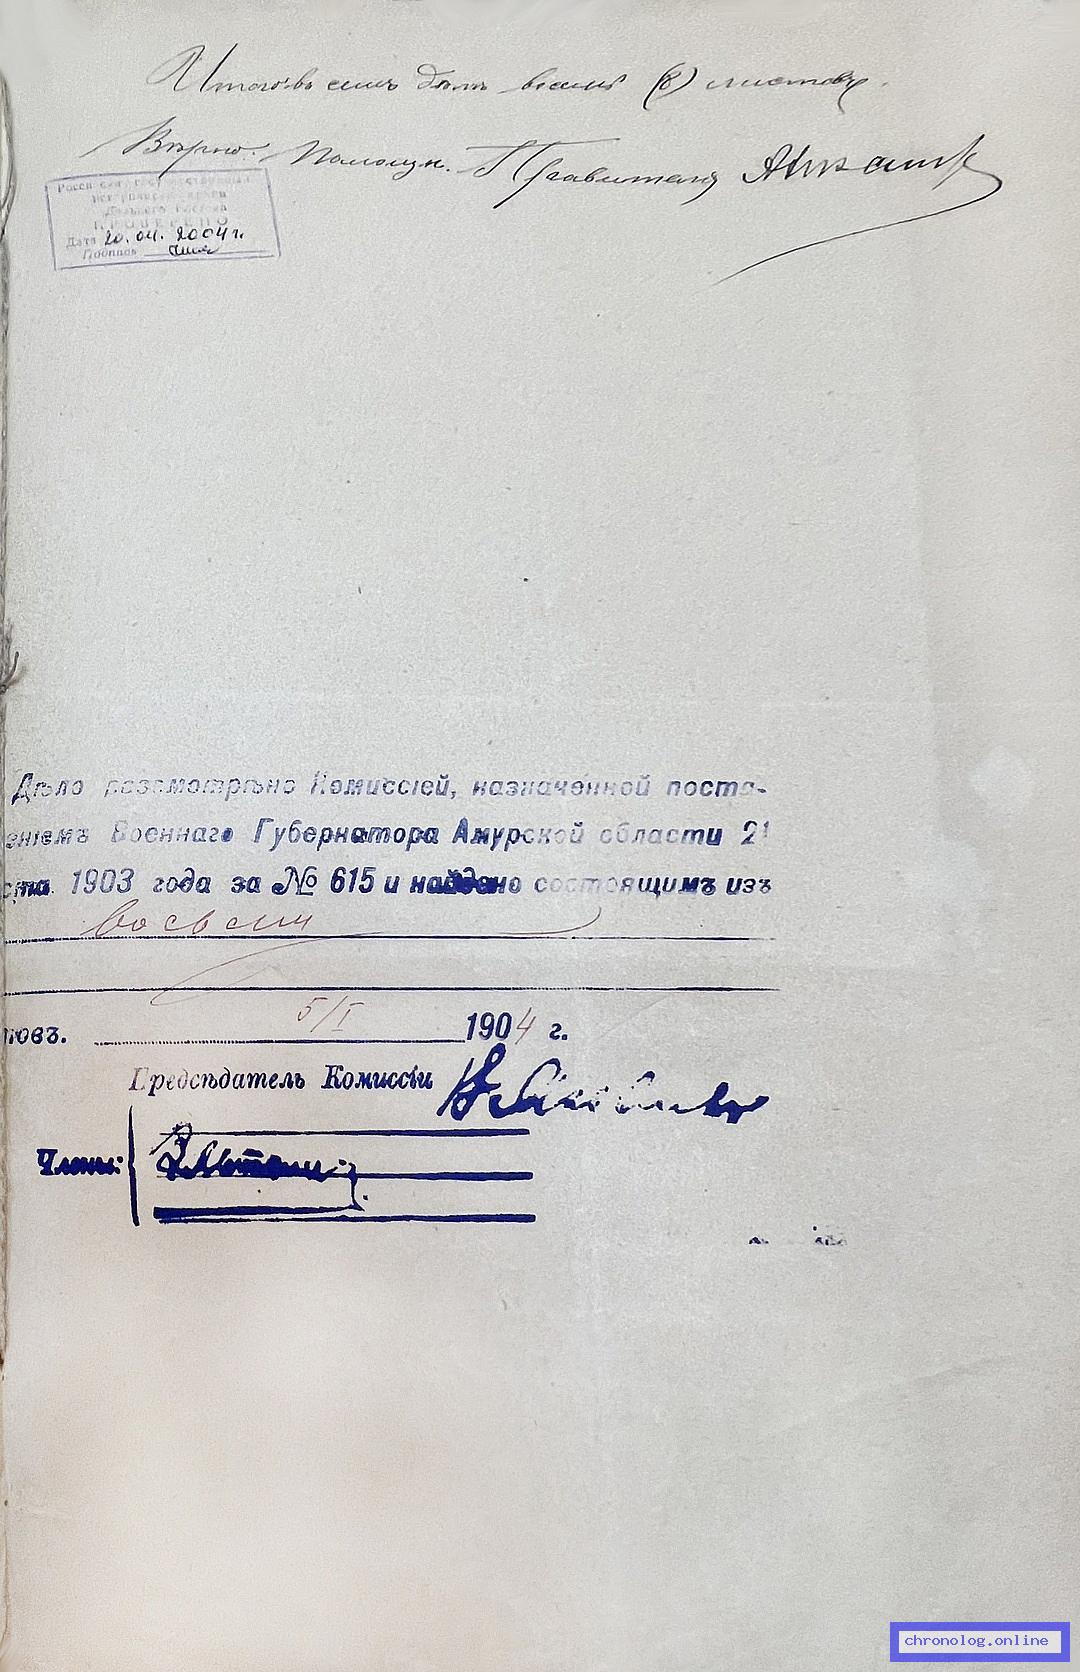 Итого въ семъ дѣлѣ восемь (8) листовъ.
Вѣрно: Помощн. Правителя
Российский государственный
исторический архив
Дальнего Востока
ПРОВЕРЕНО
Дата 20.04.2004 г.
Подпись
Дѣло разсмотрѣно Комиссіей, назначенной поста-
еніемъ Военнаго Губернатора Амурской области 21
ста 1903 года за № 615 и найдено состоящимъ изъ
восьми
товъ. 5/I 1904 г.
Предсѣдатель Комиссіи
Члены:
chronolog.online